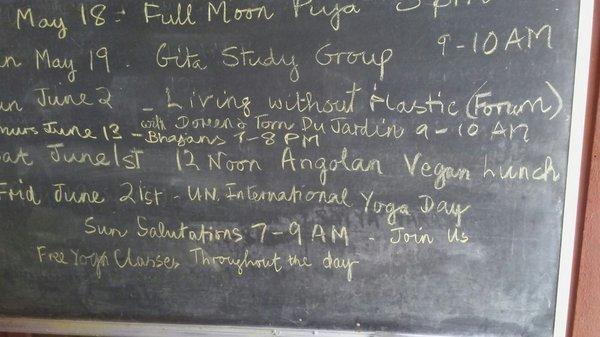 May 18: Full Moon Puja 5pm
n May 19. Gita Study Group 9-10AM
un June 2 - Living without Plastic (Forum)
with Doreen & Tom Du Jardin 9-10 AM
hurs June 13 - Bhajans 7-8 PM
at June 1st 12 Noon Angolan Vegan Lunch
Frid June 21st - U.N. International Yoga Day
Sun Salutations 7-9 AM - Join Us
Free Yoga Classes Throughout the day